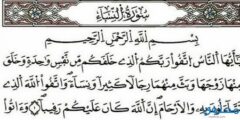 سُورَةُ النِّسَاءِ
بِسْمِ اللَّهِ الرَّحْمَٰنِ الرَّحِيمِ
يَٰٓأَيُّهَا النَّاسُ اتَّقُوا۟ رَبَّكُمُ الَّذِى خَلَقَكُم مِّن نَّفْسٍ وَٰحِدَةٍ وَخَلَقَ
مِنْهَا زَوْجَهَا وَبَثَّ مِنْهُمَا رِجَالًا كَثِيرًا وَنِسَآءً وَاتَّقُوا۟ اللَّهَ الَّذِى
تَسَآءَلُونَ بِهِۦ وَالْأَرْحَامَ إِنَّ اللَّهَ كَانَ عَلَيْكُمْ رَقِيبًا ١ وَءَاتُوا۟